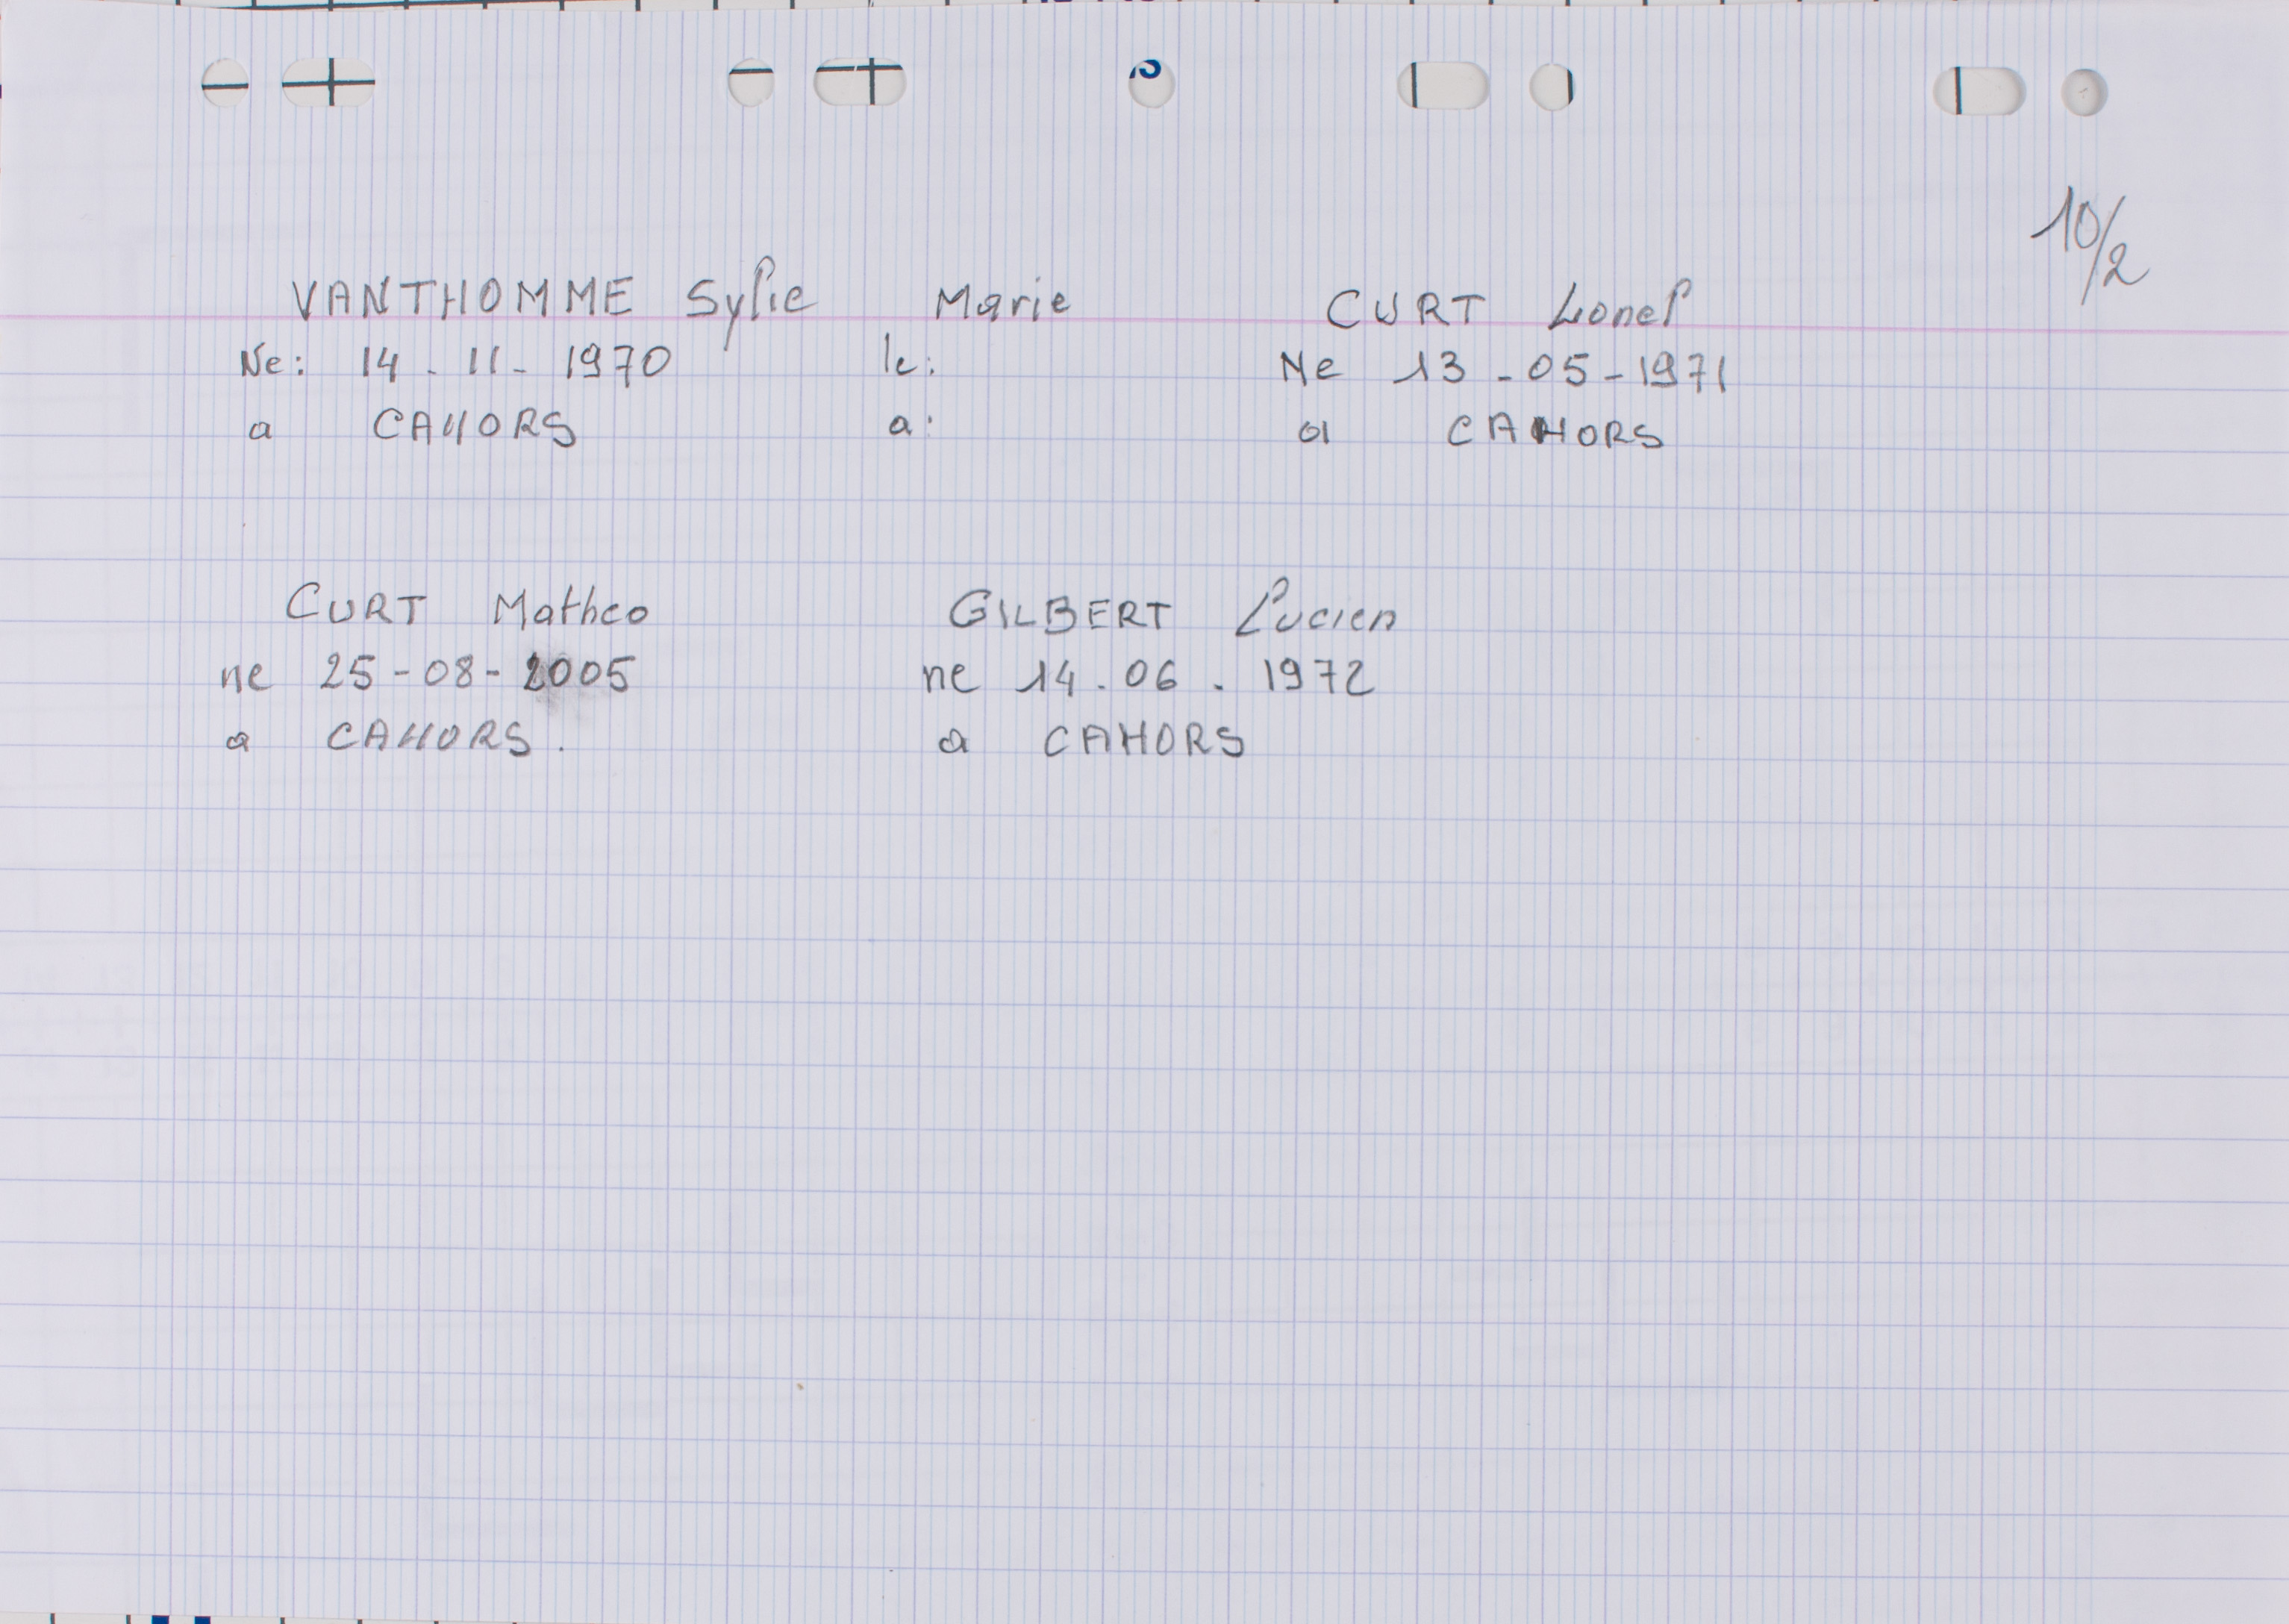 10/2
VANTHOMME Sylie Marie CURT Lionel
Ne: 14 - 11 - 1970 le: Ne 13 - 05 - 1971
a CAHORS a: a CAHORS
CURT Matheo GILBERT Lucien
ne 25 - 08 - 2005 ne 14 . 06 . 1972
a CAHORS. a CAHORS